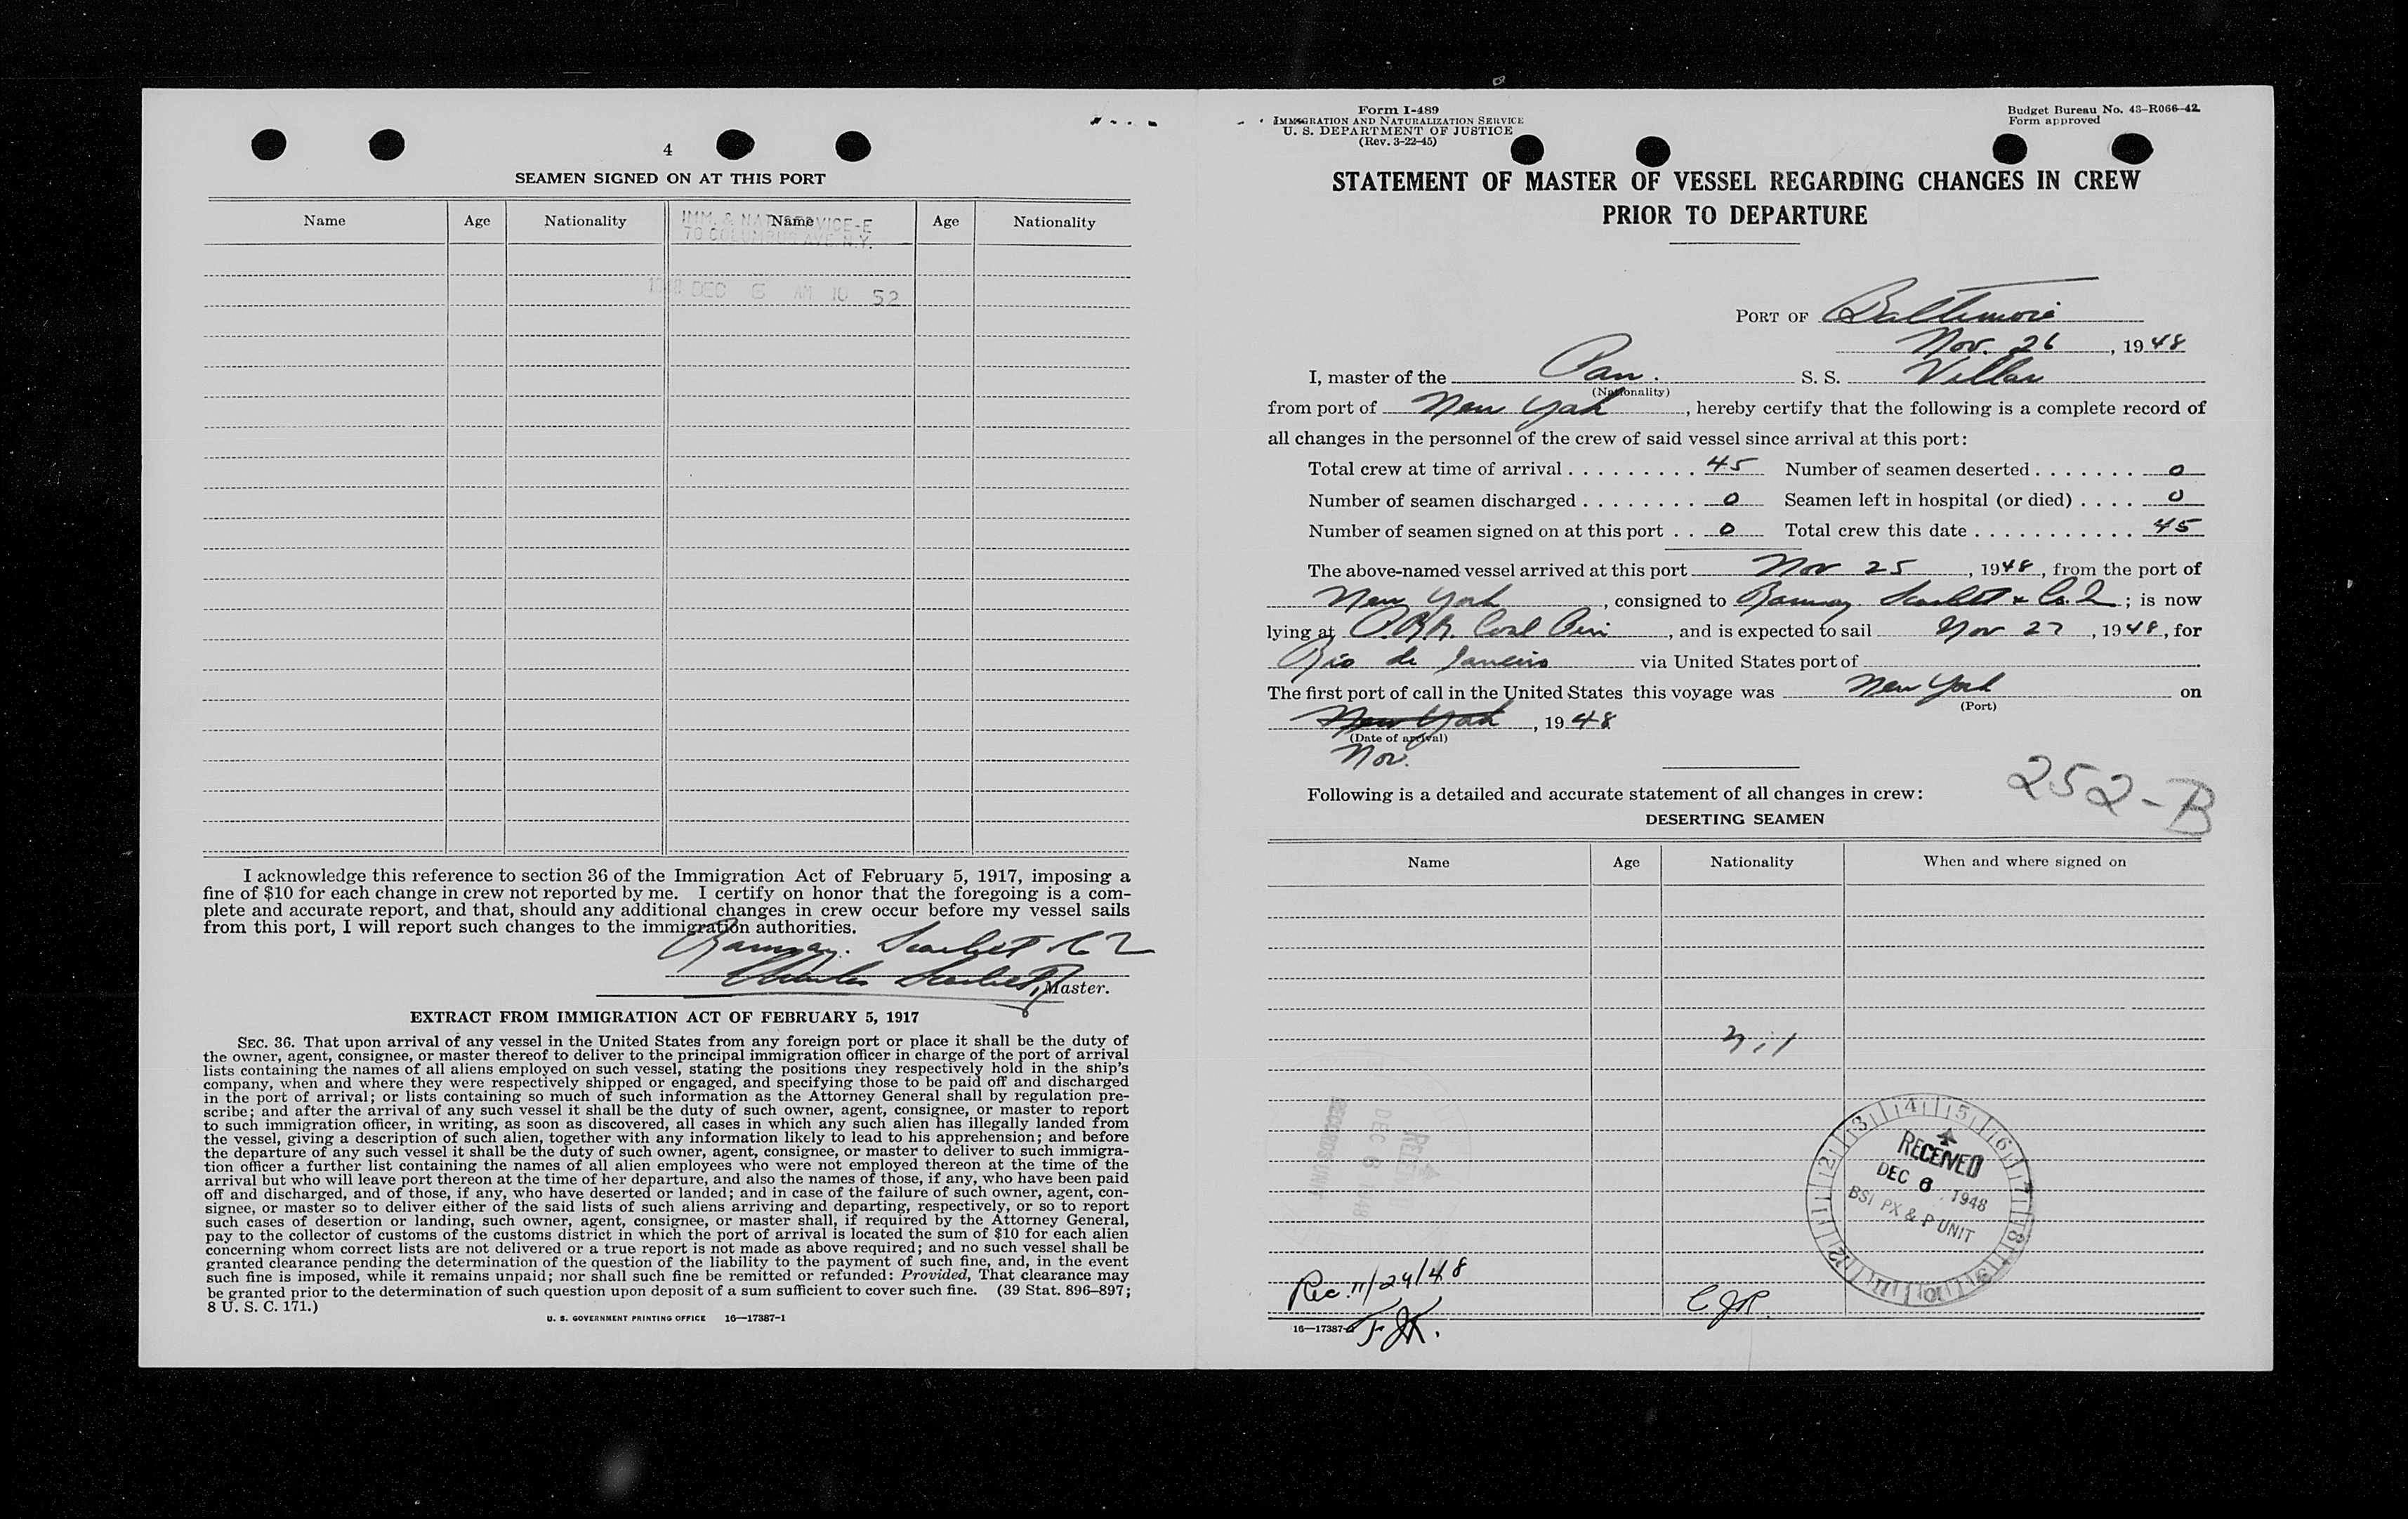 4
SEAMEN SIGNED ON AT THIS PORT
Name Age Nationality Name Age Nationality
IMM. & NAT. SERVICE-E
70 COLUMBUS AVE N.Y.
1948 DEC 6 AM 10 52
I acknowledge this reference to section 36 of the Immigration Act of February 5, 1917, imposing a
fine of $10 for each change in crew not reported by me. I certify on honor that the foregoing is a com-
plete and accurate report, and that, should any additional changes in crew occur before my vessel sails
from this port, I will report such changes to the immigration authorities.
Ramsay. Scarlett & Co
Charles Scarlett, Master.
EXTRACT FROM IMMIGRATION ACT OF FEBRUARY 5, 1917
SEC. 36. That upon arrival of any vessel in the United States from any foreign port or place it shall be the duty of
the owner, agent, consignee, or master thereof to deliver to the principal immigration officer in charge of the port of arrival
lists containing the names of all aliens employed on such vessel, stating the positions they respectively hold in the ship's
company, when and where they were respectively shipped or engaged, and specifying those to be paid off and discharged
in the port of arrival; or lists containing so much of such information as the Attorney General shall by regulation pre-
scribe; and after the arrival of any such vessel it shall be the duty of such owner, agent, consignee, or master to report
to such immigration officer, in writing, as soon as discovered, all cases in which any such alien has illegally landed from
the vessel, giving a description of such alien, together with any information likely to lead to his apprehension; and before
the departure of any such vessel it shall be the duty of such owner, agent, consignee, or master to deliver to such immigra-
tion officer a further list containing the names of all alien employees who were not employed thereon at the time of the
arrival but who will leave port thereon at the time of her departure, and also the names of those, if any, who have been paid
off and discharged, and of those, if any, who have deserted or landed; and in case of the failure of such owner, agent, con-
signee, or master so to deliver either of the said lists of such aliens arriving and departing, respectively, or so to report
such cases of desertion or landing, such owner, agent, consignee, or master shall, if required by the Attorney General,
pay to the collector of customs of the customs district in which the port of arrival is located the sum of $10 for each alien
concerning whom correct lists are not delivered or a true report is not made as above required; and no such vessel shall be
granted clearance pending the determination of the question of the liability to the payment of such fine, and, in the event
such fine is imposed, while it remains unpaid; nor shall such fine be remitted or refunded: Provided, That clearance may
be granted prior to the determination of such question upon deposit of a sum sufficient to cover such fine. (39 Stat. 896–897;
8 U. S. C. 171.)
U. S. GOVERNMENT PRINTING OFFICE 16—17387-1
Form I-489
IMMIGRATION AND NATURALIZATION SERVICE
U. S. DEPARTMENT OF JUSTICE
(Rev. 3-22-45)
Budget Bureau No. 43-R066-42
Form approved
STATEMENT OF MASTER OF VESSEL REGARDING CHANGES IN CREW
PRIOR TO DEPARTURE
PORT OF Baltimore
Nov. 26, 1948
I, master of the Pan. S. S. Villar
(Nationality)
from port of New York, hereby certify that the following is a complete record of
all changes in the personnel of the crew of said vessel since arrival at this port:
Total crew at time of arrival . . . . . . . . . 45 Number of seamen deserted . . . . . . . 0
Number of seamen discharged . . . . . . . . 0 Seamen left in hospital (or died) . . . . 0
Number of seamen signed on at this port . . 0 Total crew this date . . . . . . . . . . . 45
The above-named vessel arrived at this port Nov 25, 1948, from the port of
New York, consigned to Ramsay Scarlett & Co.; is now
lying at P.R.R. Coal Pier, and is expected to sail Nov 27, 1948, for
Rio de Janeiro via United States port of
The first port of call in the United States this voyage was New York on
(Port)
New York, 1948
(Date of arrival)
Nov.
252-B
Following is a detailed and accurate statement of all changes in crew:
DESERTING SEAMEN
Name Age Nationality When and where signed on
nil
RECEIVED
DEC 6 1948
RECORDS UNIT
3 4 5 6 7 8 9 10 11 12 1 2
RECEIVED
DEC 6 1948
BSI PX & P UNIT
Rec. 11/24/48
CJR
16—17387-1 F.J.K.